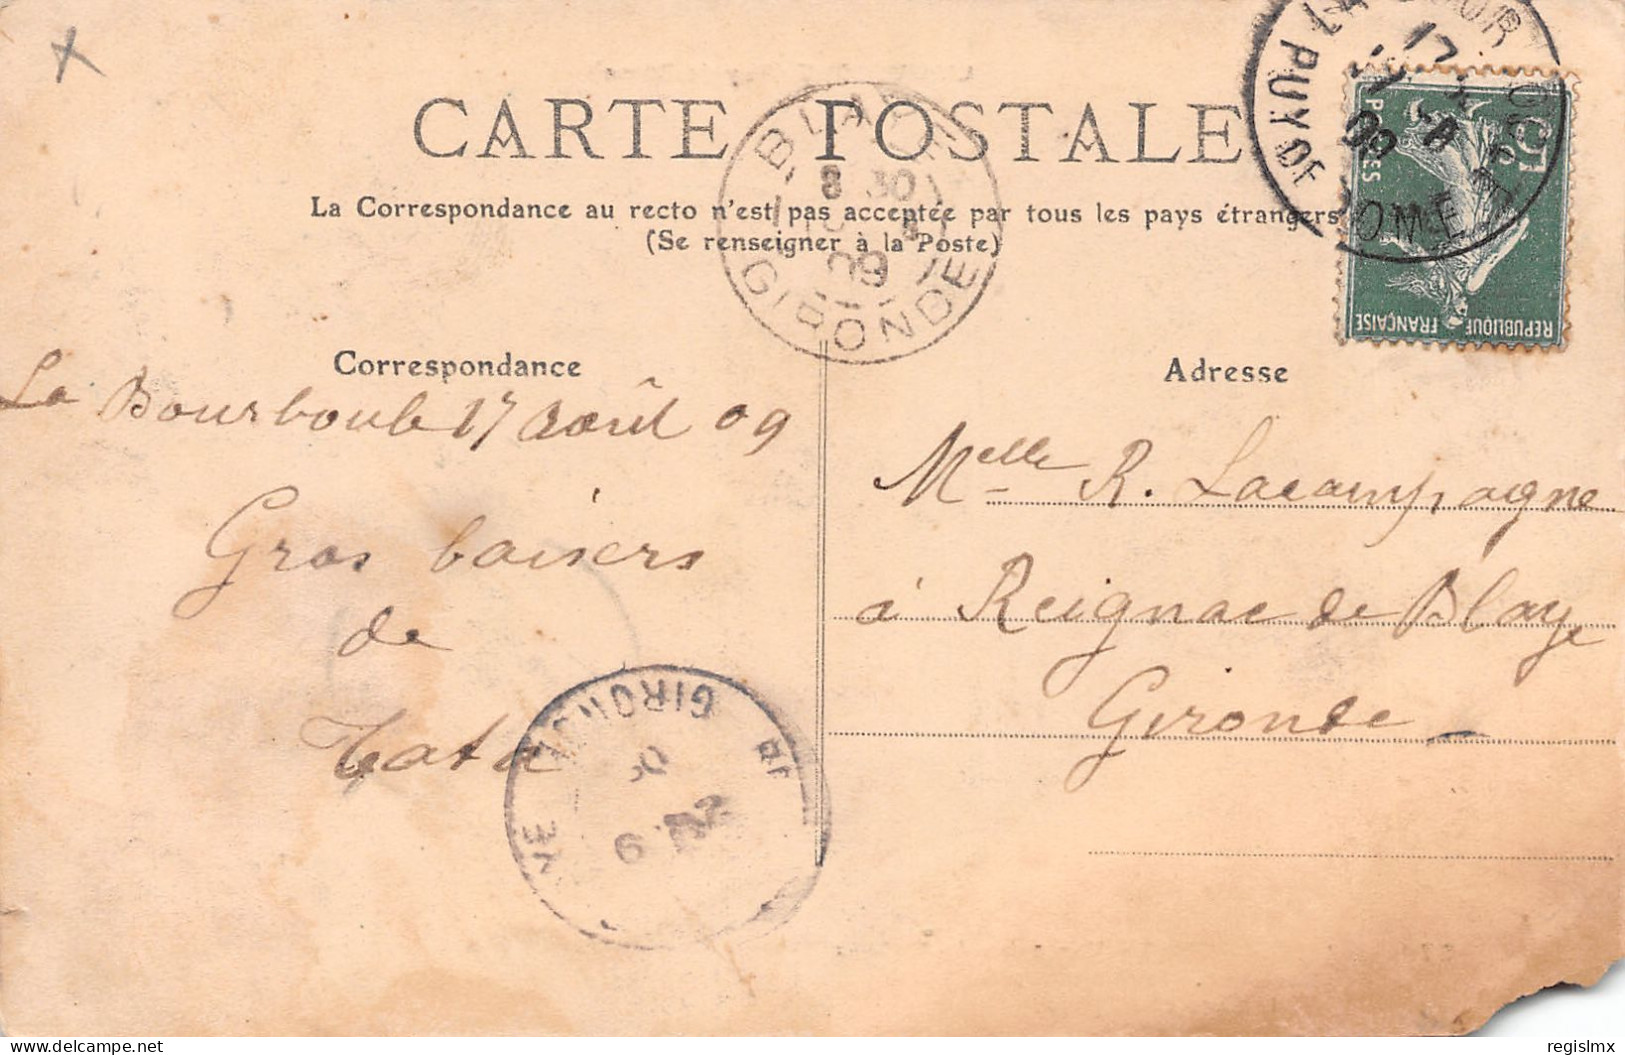 CARTE POSTALE
La Correspondance au recto n'est pas acceptée par tous les pays étrangers
(Se renseigner à la Poste)
Correspondance
La Bourboule 17 Août 09
Gros baisers
de
Tata
Adresse
Melle R. Lacampagne
à Reignac de Blaye
Gironde
BLAYE
8 30
09
GIRONDE
PUY DE DOME
17 - 8
09
5
POSTES
REPUBLIQUE FRANÇAISE
GIRONDE
delcampe.net
regislmx